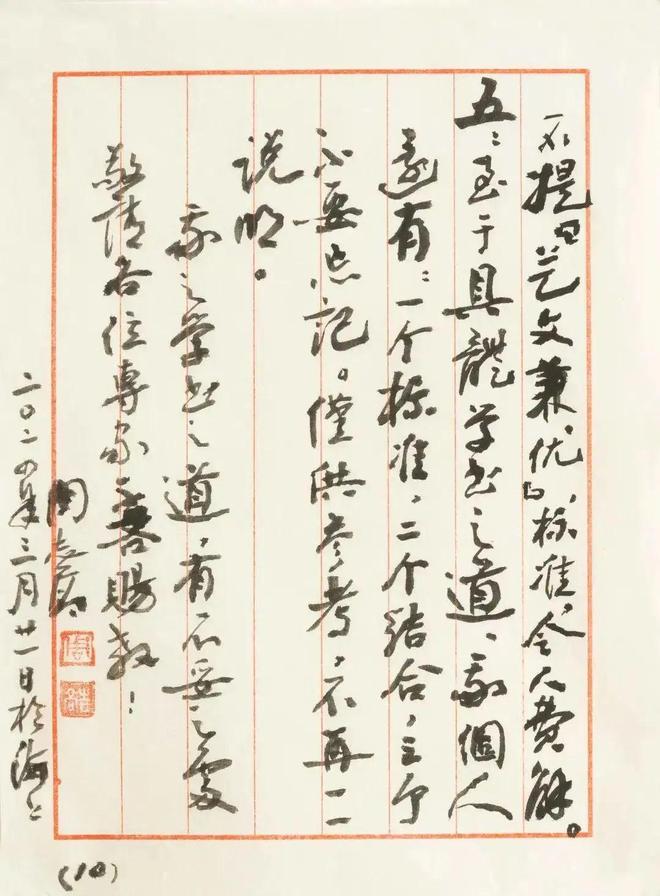 不提『艺文兼优』标准，令人费解。
五：至于具體学书之道、我個人
還有：一个标准，二个结合，三个
不要忘记。僅供参考，不再一一
说明。
我之学书之道，有不妥之處
敬请各位專家善賜教！
周志高
二〇二四年三月廿一日於海上
(10)